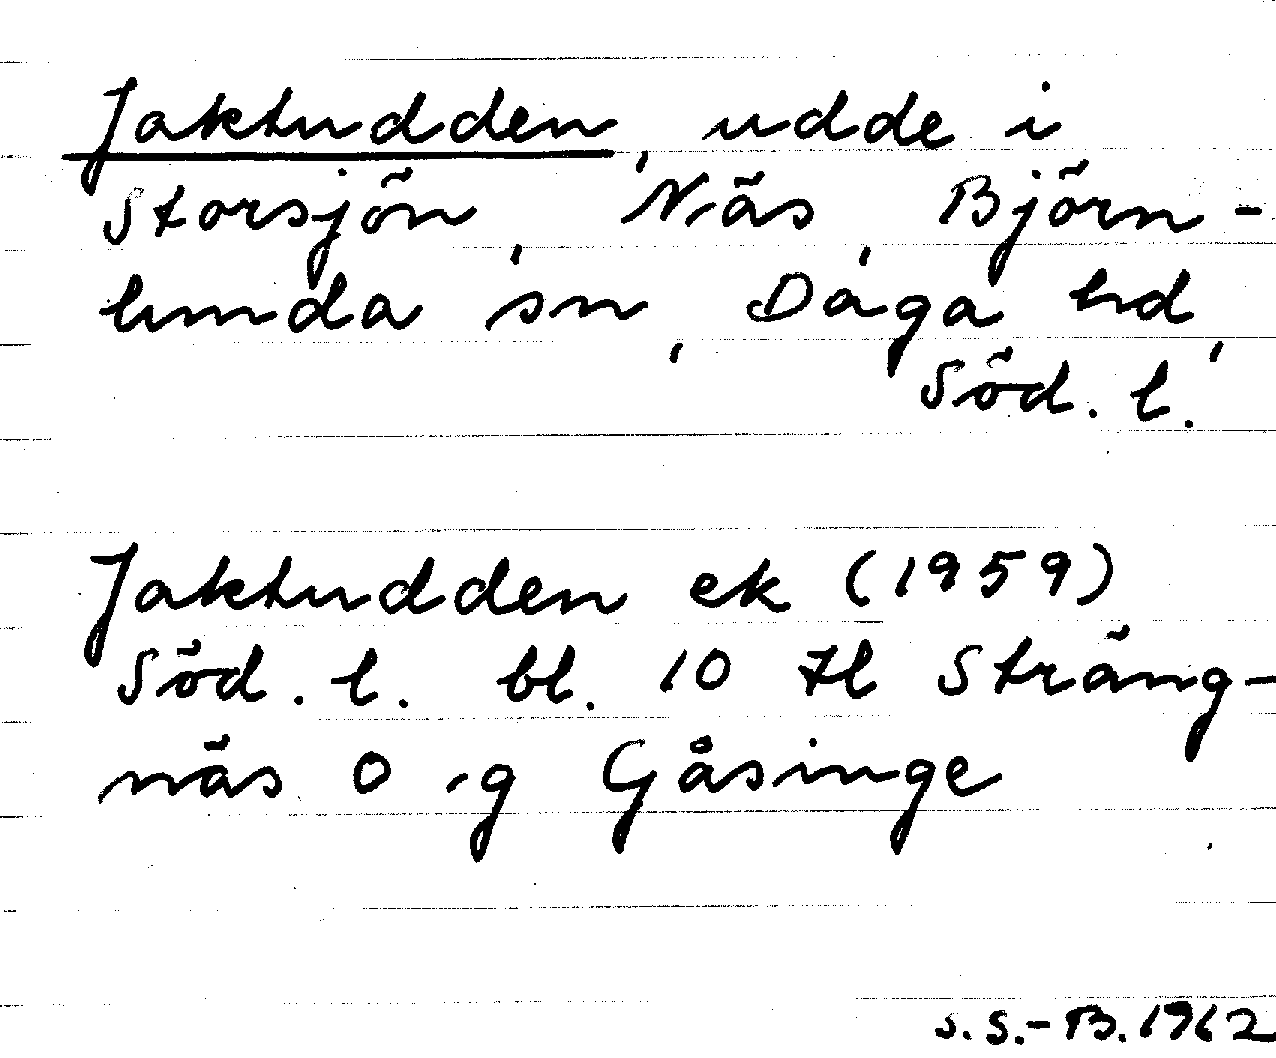 Jaktudden, udde i
Storsjön, Näs, Björn-
lunda sn, Daga hd,
Söd. l.
Jaktudden ek (1959)
Söd. l. bl. 10 tl Sträng-
näs o .g Gåsinge
S. S.-B. 1962